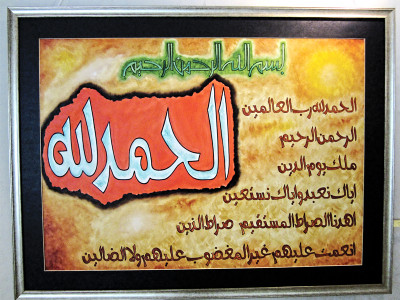 بسم الله الرحمن الرحيم
الحمد لله
الحمد لله رب العالمين
الرحمن الرحيم
ملك يوم الدين
اياك نعبد واياك نستعين
اهدنا الصراط المستقيم صراط الذين
انعمت عليهم غير المغضوب عليهم ولا الضالين